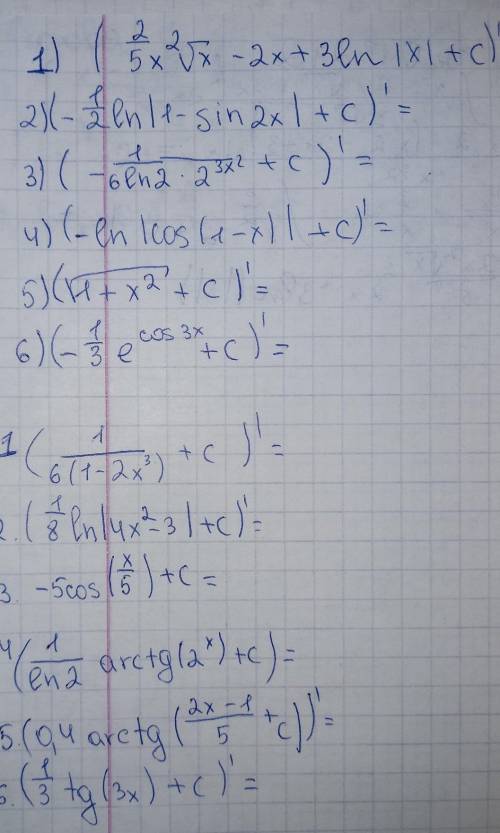 1) ( 2/5 x² √x - 2x + 3ln |x| + c)'
2) (- 1/2 ln|1 - sin2x| + c)' =
3) (- 1/(6ln2 · 2^(3x²)) + c)' =
4) (-ln|cos(1-x)| + c)' =
5) (√(1 + x²) + c)' =
6) (- 1/3 e^(cos3x) + c)' =
1 ( 1/(6(1-2x³)) + c)' =
2. ( 1/8 ln|4x² - 3| + c)' =
3. -5cos(x/5) + c =
4 ( 1/ln2 arctg(2^x) + c) =
5. (0,4 arctg ( (2x - 1)/5 + c))' =
6. ( 1/3 tg(3x) + c)' =